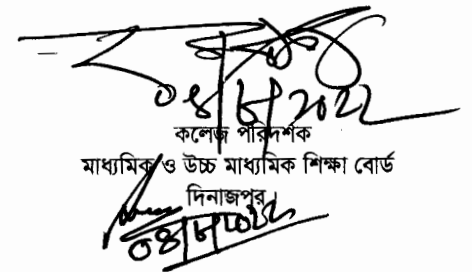 ০৪/৮/২০২২
কলেজ পরিদর্শক
মাধ্যমিক ও উচ্চ মাধ্যমিক শিক্ষা বোর্ড
দিনাজপুর।
০৪/৮/২০২২